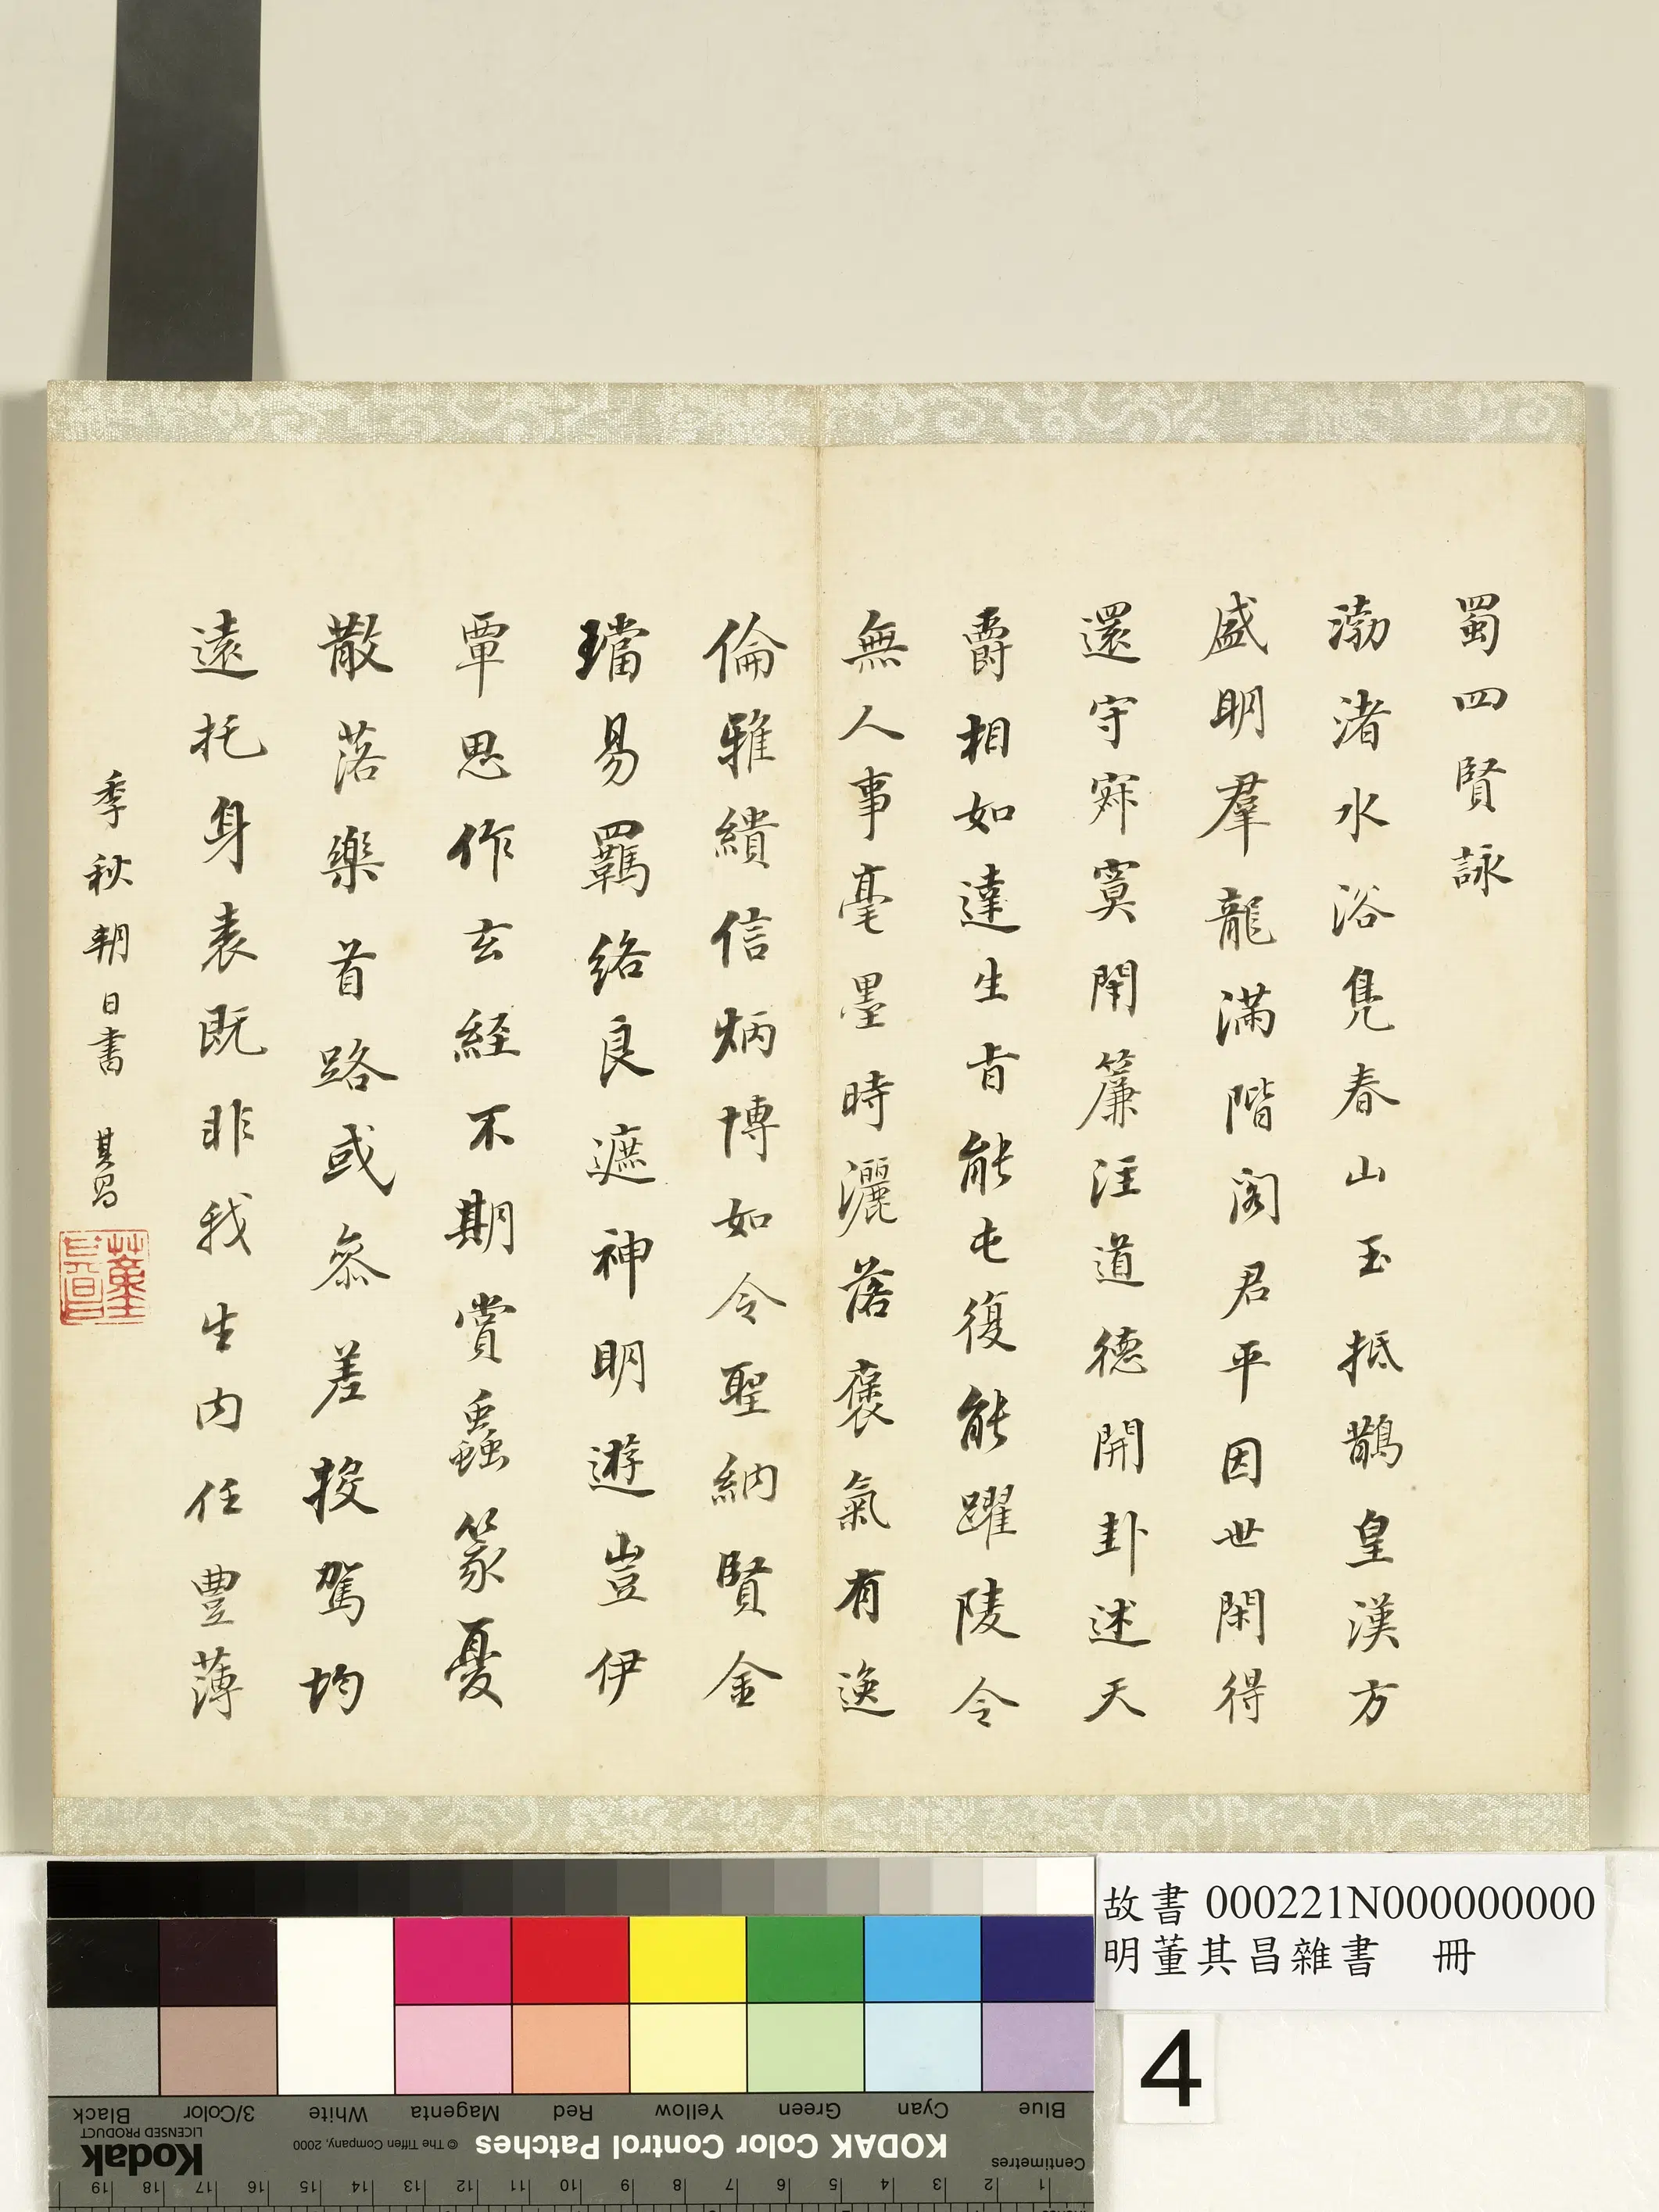 蜀四賢詠
渤渚水浴鳧春山玉抵鵲皇漢方
盛明羣龍滿階閣君平因世閑得
還守寂寞閑簾注道德開卦述天
爵相如達生旨能屯復能躍陵令
無人事毫墨時灑落褒氣有逸
倫雅繢信炳博如令聖納賢金
璫易羈絡良遮神明遊豈伊
覃思作玄経不期賞蟲篆憂
散落樂首路或叅差投駕均
遠托身表既非我生內任豐薄
季秋朔日書 其昌
董其昌
故書 000221N000000000
明董其昌雜書 冊
4
Blue
Cyan
Green
Yellow
Red
Magenta
White
3/Color
Black
KODAK Color Control Patches
© The Tiffen Company, 2000
Kodak
LICENSED PRODUCT
Centimetres
1 2 3 4 5 6 7 8 9 10 11 12 13 14 15 16 17 18 19